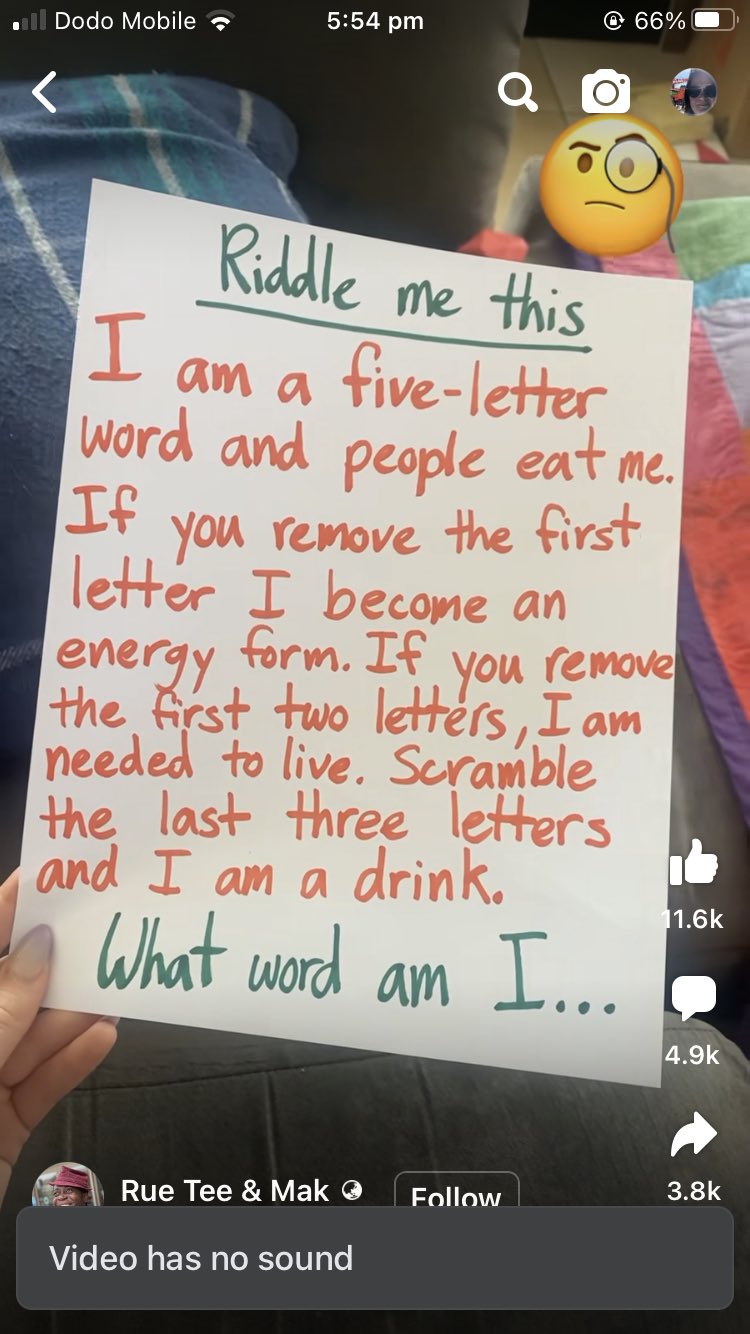 Dodo Mobile 5:54 pm 66%
Riddle me this
I am a five-letter
word and people eat me.
If you remove the first
letter I become an
energy form. If you remove
the first two letters, I am
needed to live. Scramble
the last three letters
and I am a drink.
What word am I...
11.6k
4.9k
3.8k
Rue Tee & Mak Follow
Video has no sound